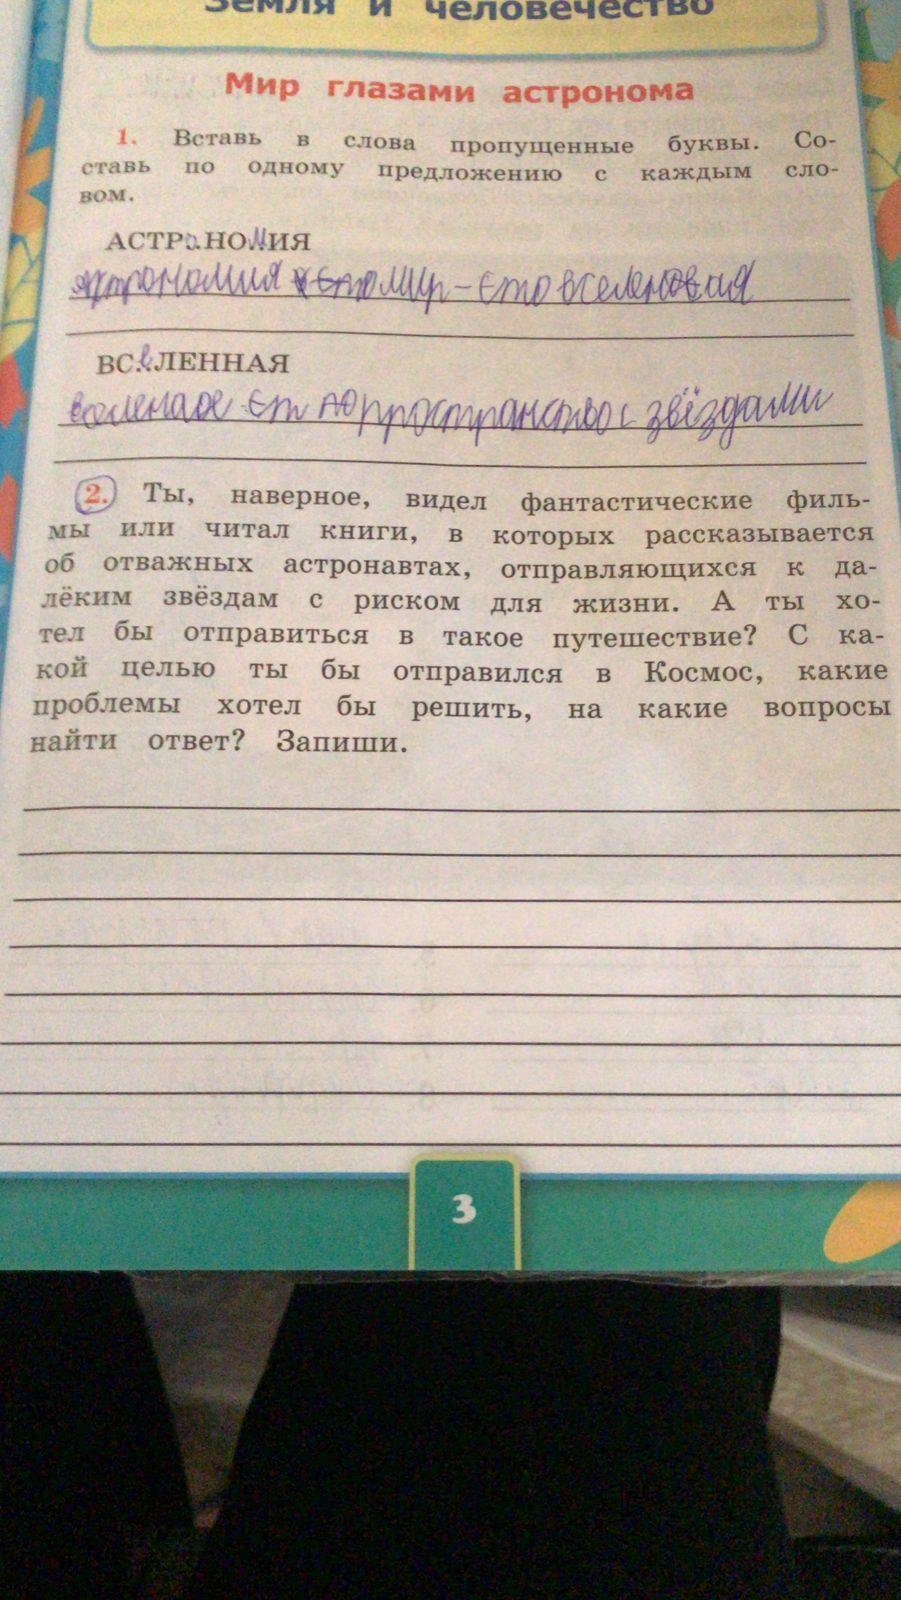 Земля и человечество
Мир глазами астронома
1. Вставь в слова пропущенные буквы. Со-
ставь по одному предложению с каждым сло-
вом.
АСТРоНОмИЯ
астрономия мир - ето вселеновая
ВСеЛЕННАЯ
пространство с звёздами
2. Ты, наверное, видел фантастические филь-
мы или читал книги, в которых рассказывается
об отважных астронавтах, отправляющихся к да-
лёким звёздам с риском для жизни. А ты хо-
тел бы отправиться в такое путешествие? С ка-
кой целью ты бы отправился в Космос, какие
проблемы хотел бы решить, на какие вопросы
найти ответ? Запиши.
3